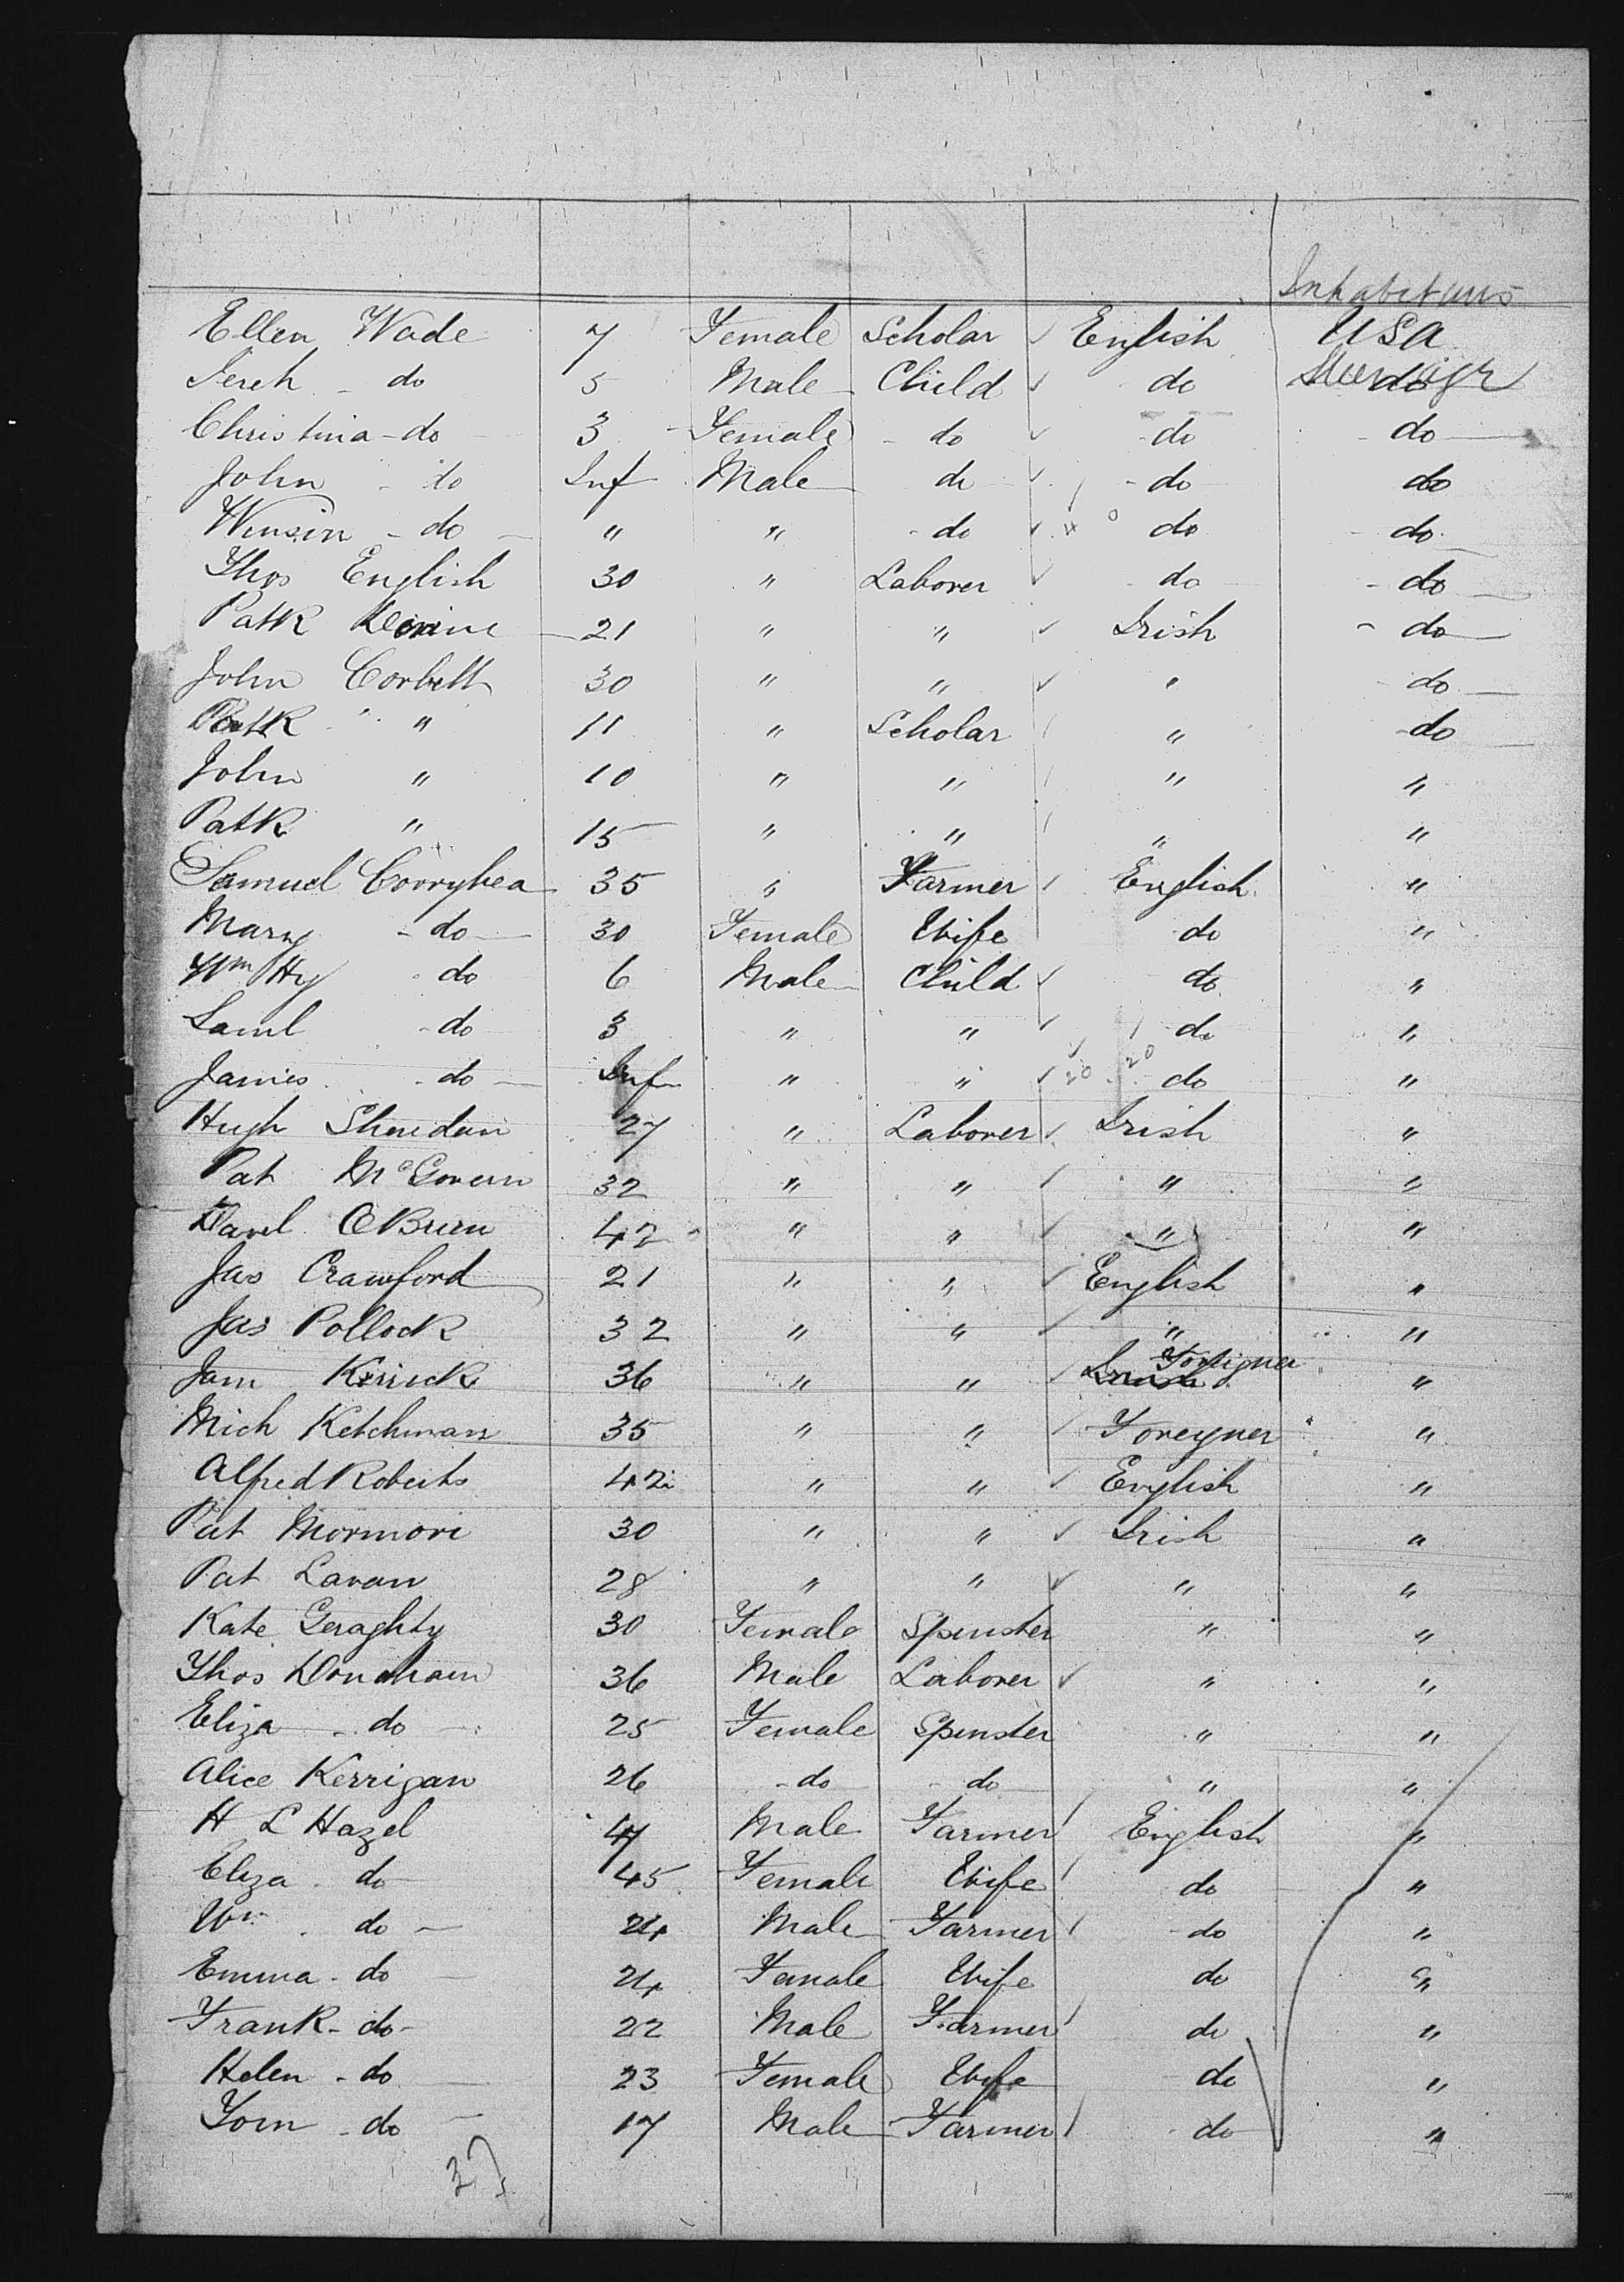 Inhabitans
Ellen Wade 7 Female Scholar ✓ English USA
Jereh - do 5 Male Child ✓ do do
Christina - do 3 Female - do ✓ do do
John - do Inf Male do ✓ - do do
Winsin - do " " - do ✓ do - do
Thos English 30 " Laborer ✓ do - do
Patk 21 " " ✓ Irish - do
John Corbett 30 " " ✓ " do
Patk " 11 " Scholar " do
John " 10 " " " "
Patk " 15 " " " "
Samuel Corryhea 35 " Farmer English "
Mary - do 30 Female Wife do "
Wm Hy do 6 Male Child ✓ do "
Saml - do 3 " " ✓ do "
James - do Inf " " ✓ 20 20 do "
Hugh Sheridan 27 " Laborer ✓ Irish "
Pat McGovern 32 " " ✓ " "
O'Brien 42 " " ✓ " "
Jas Crawford 21 " " ✓ English "
Jas Pollock 32 " " ✓ " "
Jam 36 " " ✓ Foreigner "
Mich Ketchman 35 " " ✓ Foreyner "
Alfred Roberts 42 " " ✓ English "
Pat Mormon 30 " " ✓ Irish "
Pat Lavan 28 " " ✓ " "
Kate Geraghty 30 Female Spinster " "
Thos Donaham 36 Male Laborer ✓ " "
Eliza - do 25 Female Spinster " "
Alice Kerrigan 26 - do - do " "
H L Hazel 47 Male Farmer English "
Eliza do 45 Female Wife do "
Wm do 24 Male Farmer do "
Emma - do 24 Female Wife do "
Frank - do - 22 Male Farmer do "
Helen - do 23 Female Wife do "
Tom - do 17 Male Farmer do "
37